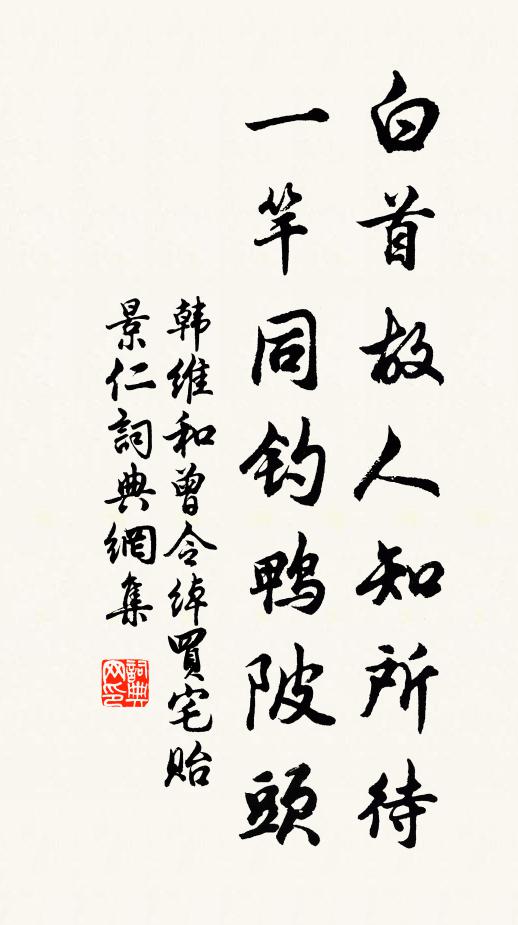 白首故人知所待
一竿同钓鸭陂頭
韩維和曾令綽買宅貽
景仁詞典網集
詞典网印